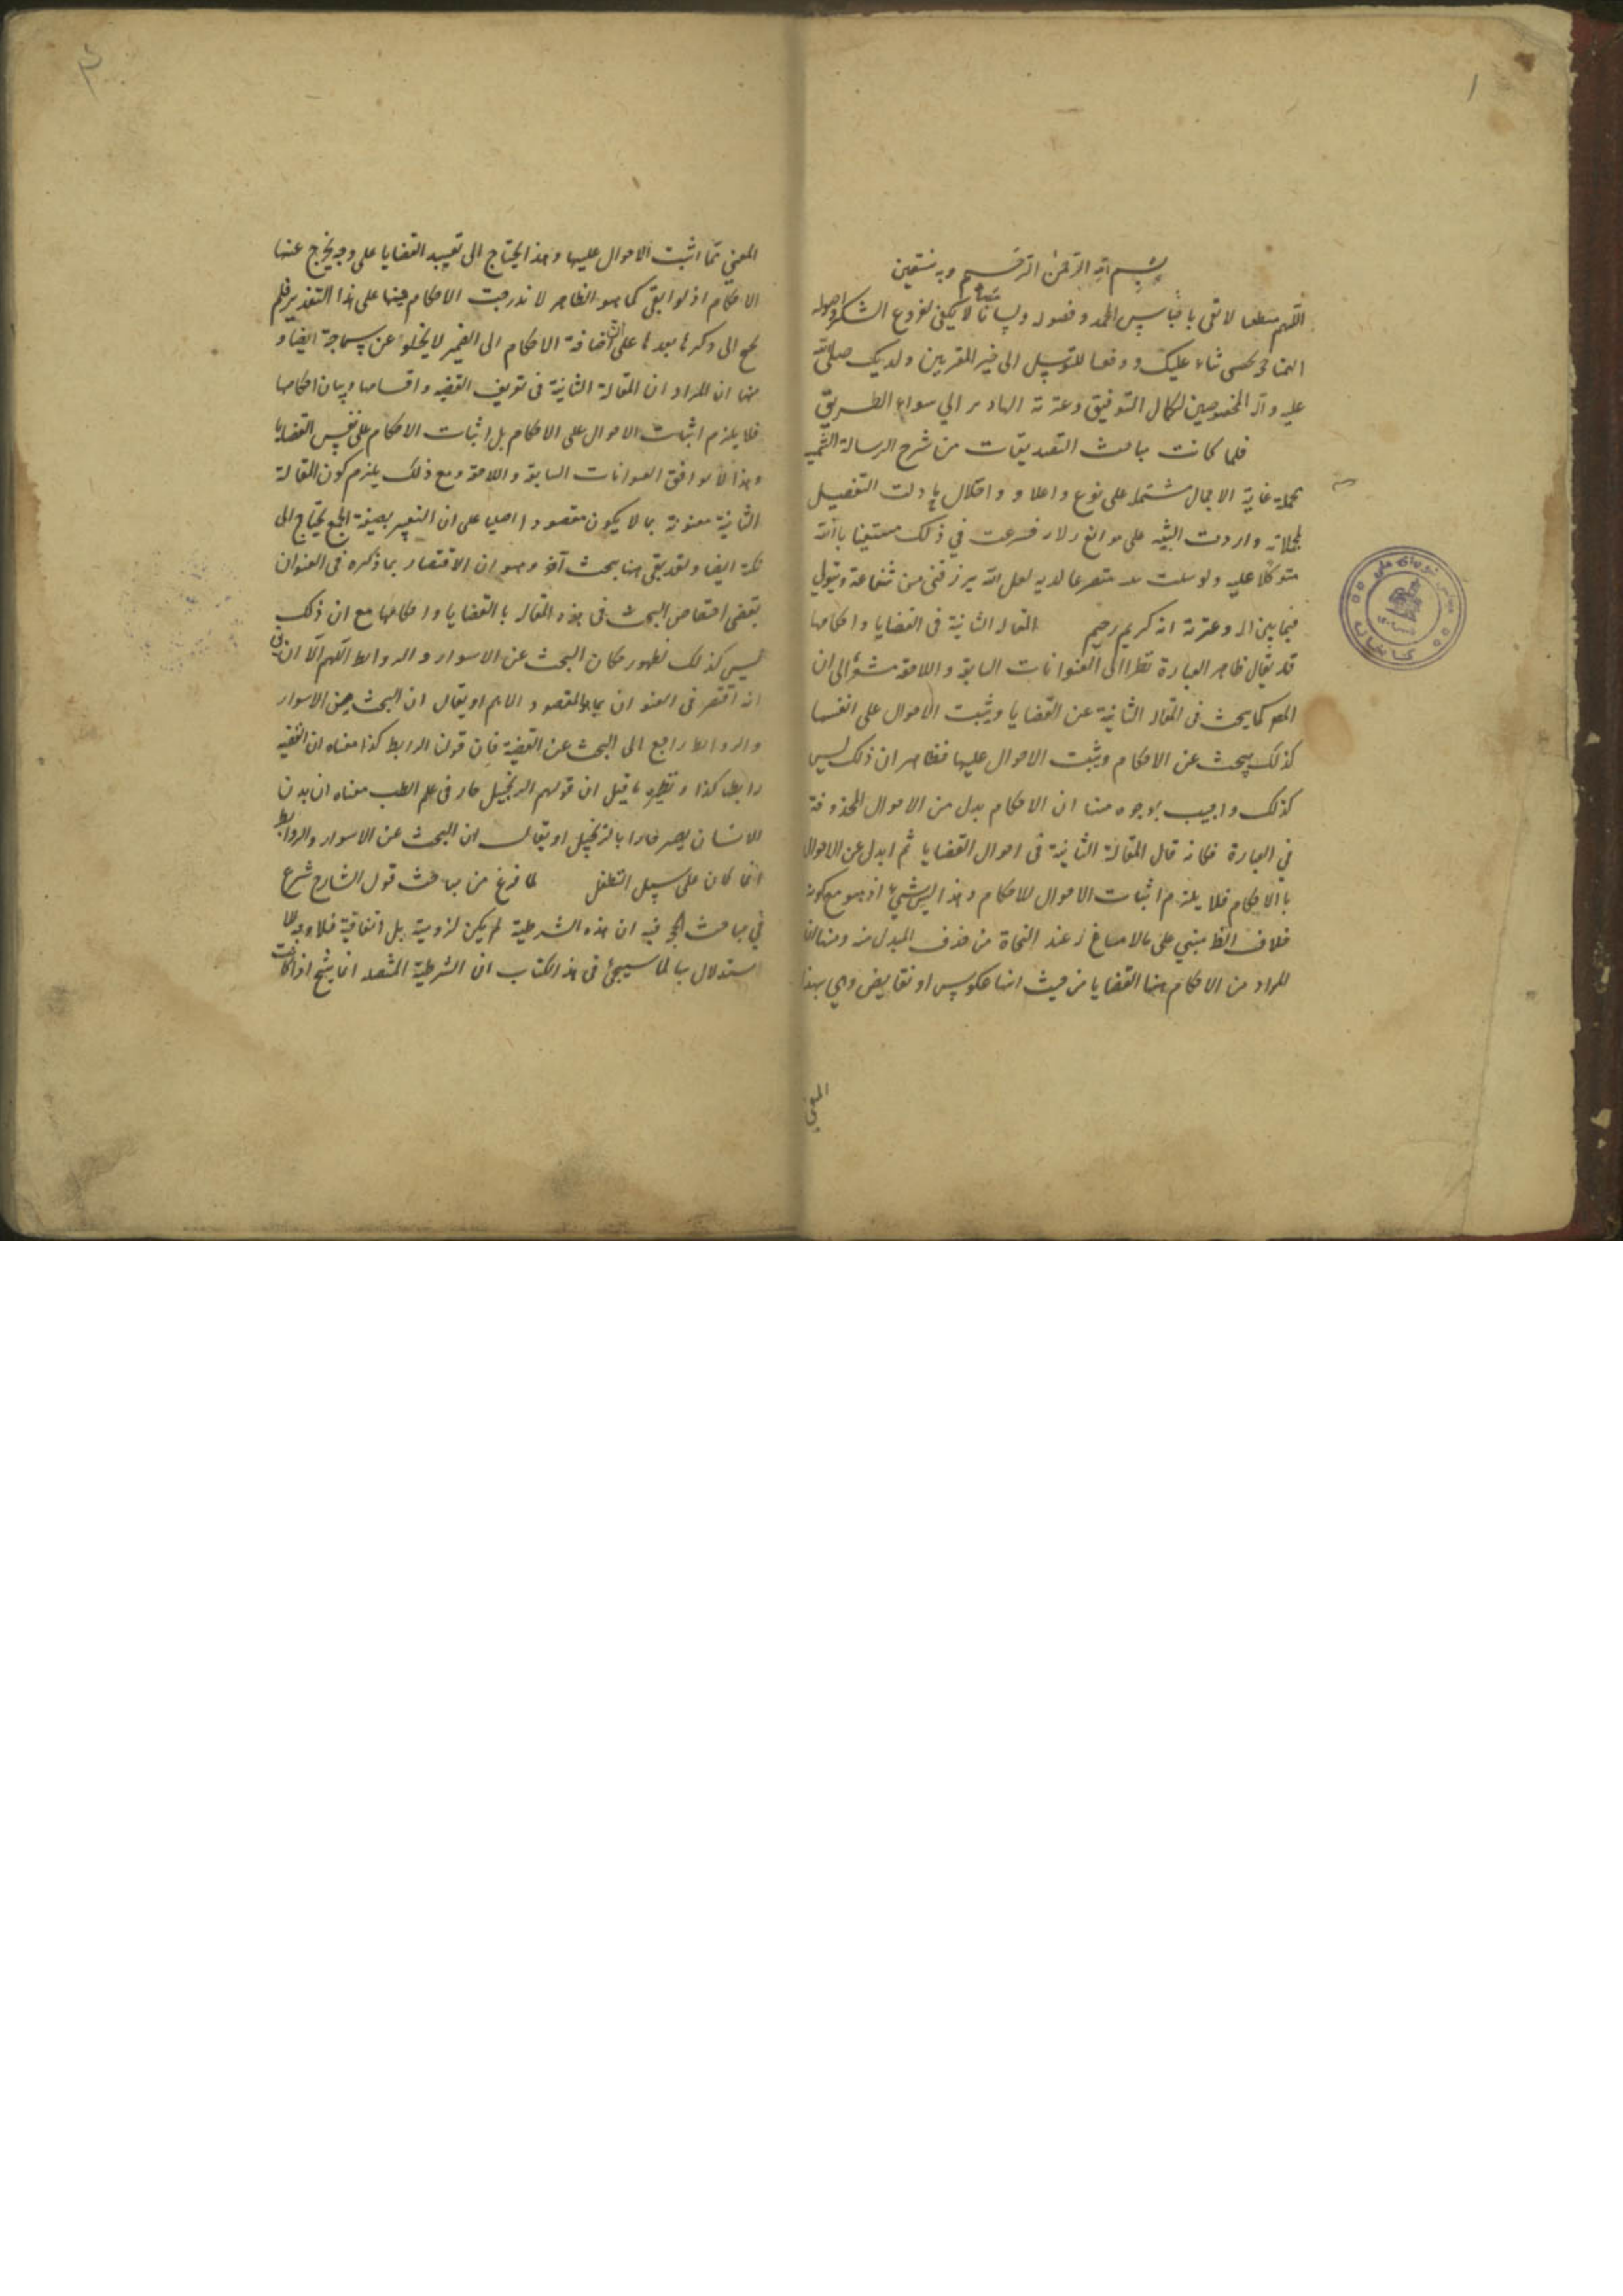 ١
بسم الله الرحمن الرحيم وبه نستعين
اللهم منطقا لائق باقياس الحمد وفصوله ولسانا لا يكفى لفروع الشكر واصوله
ثناء عليك ووفقنا للتوسل الى خير المقربين ولديك صلى الله
عليه وآله المخصوصين لكمال التوفيق وعترته الهادين الى سواء الطريق
فلما كانت مباحث التصديقات من شرح الرسالة الشمسية
غاية الاجمال مشتملة على نوع واخلال التفصيل
لمجملاته واردت التنبيه على فشرعت في ذلك مستعينا بالله
متوكلا عليه متضرعا لديه لعل الله يرزقنى من شفاعة
فيما بين آله وعترته انه كريم رحيم المقالة الثانية فى القضايا واحكامها
قد يقال ظاهر العبارة نظرا الى العنوانات السابقة واللاحقة مشعر الى ان
المص كما يبحث فى المقالة الثانية عن القضايا ويثبت الاحوال على انفسها
كذلك يبحث عن الاحكام ويثبت الاحوال عليها فظاهر ان ذلك ليس
كذلك واجيب بوجوه منها ان الاحكام بدل من الاحوال المحذوفة
في العبارة فكانه قال المقالة الثانية فى احوال القضايا ثم ابدل عن الاحوال
بالاحكام فلا يلزم اثبات الاحوال للاحكام وهذا ليس بشئ اذ هو مع كونه
خلاف الظ مبني على ما لا مساغ له عند النحاة من حذف المبدل منه ومنها ان
المراد من الاحكام هنا القضايا من حيث انها عكوس او نقايض وهي بهذا
المعنى
المعنى مما اثبت الاحوال عليها وهذا يحتاج الى تقييد القضايا على وجه يخرج عنها
الاحكام اذ لو ابقى كما هو الظاهر لاندرجت الاحكام فيها على هذا التقدير فلم
يحتج الى ذكرها بعدها على ان اضافة الاحكام الى الضمير لا يخلو عن سماجة ايضا و
منها ان المراد ان المقالة الثانية فى تعريف القضيه واقسامها وبيان احكامها
فلا يلزم اثبات الاحوال على الاحكام بل اثبات الاحكام على نفس القضايا
وهذا لا يوافق العنوانات السابقة واللاحقة ومع ذلك يلزم كون المقالة
الثانية معنونة بما لا يكون مقصودا اصليا على ان التعبير بصيغة الجمع يحتاج الى
نكتة ايضا ولقد بقى هنا بحث آخر وهو ان الاقتصار بما ذكره فى العنوان
يقتضى اختصاص البحث فى هذه المقالة بالقضايا واحكامها مع ان ذلك
ليس كذلك لظهور مكان البحث عن الاسوار والروابط اللهم الا ان يق
انه اقتصر فى العنوان بما هو المقصود الاهم او يقال ان البحث عن الاسوار
والروابط راجع الى البحث عن القضية فان قولنا الرابط كذا معناه ان القضية
رابطها كذا ونظيره ما قيل ان قولهم الزنجبيل حار فى علم الطب معناه ان بدن
الانسان يصير حارا بالزنجبيل او يقال ان البحث عن الاسوار والروابط
انما كان على سبيل التطفل لما فرغ من مباحث قول الشارح شرع
في مباحث الحجة فيه ان هذه الشرطية لم يكن لزومية بل اتفاقية فلا وجه لل
استدلال بها لما سيجئ فى هذا الكتاب ان الشرطية المتصلة انما ينتج اذا كانت